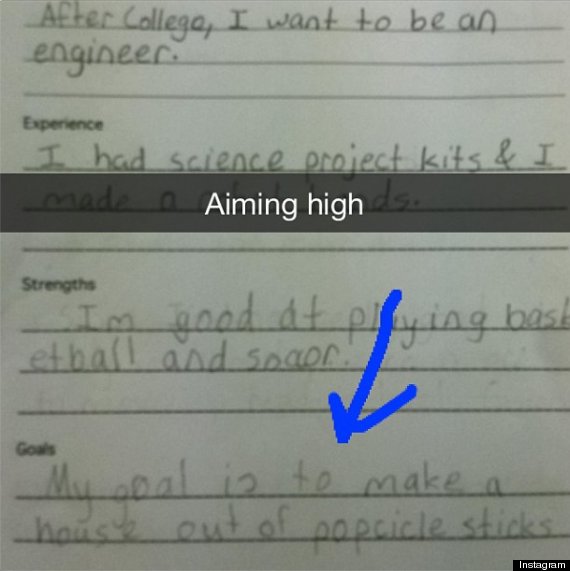 After College, I want to be an
engineer.
Experience
I had science project kits & I
made a
Aiming high
Strengths
Im good at playing bask
etball and
Goals
My goal is to make a
house out of popcicle sticks
Instagram